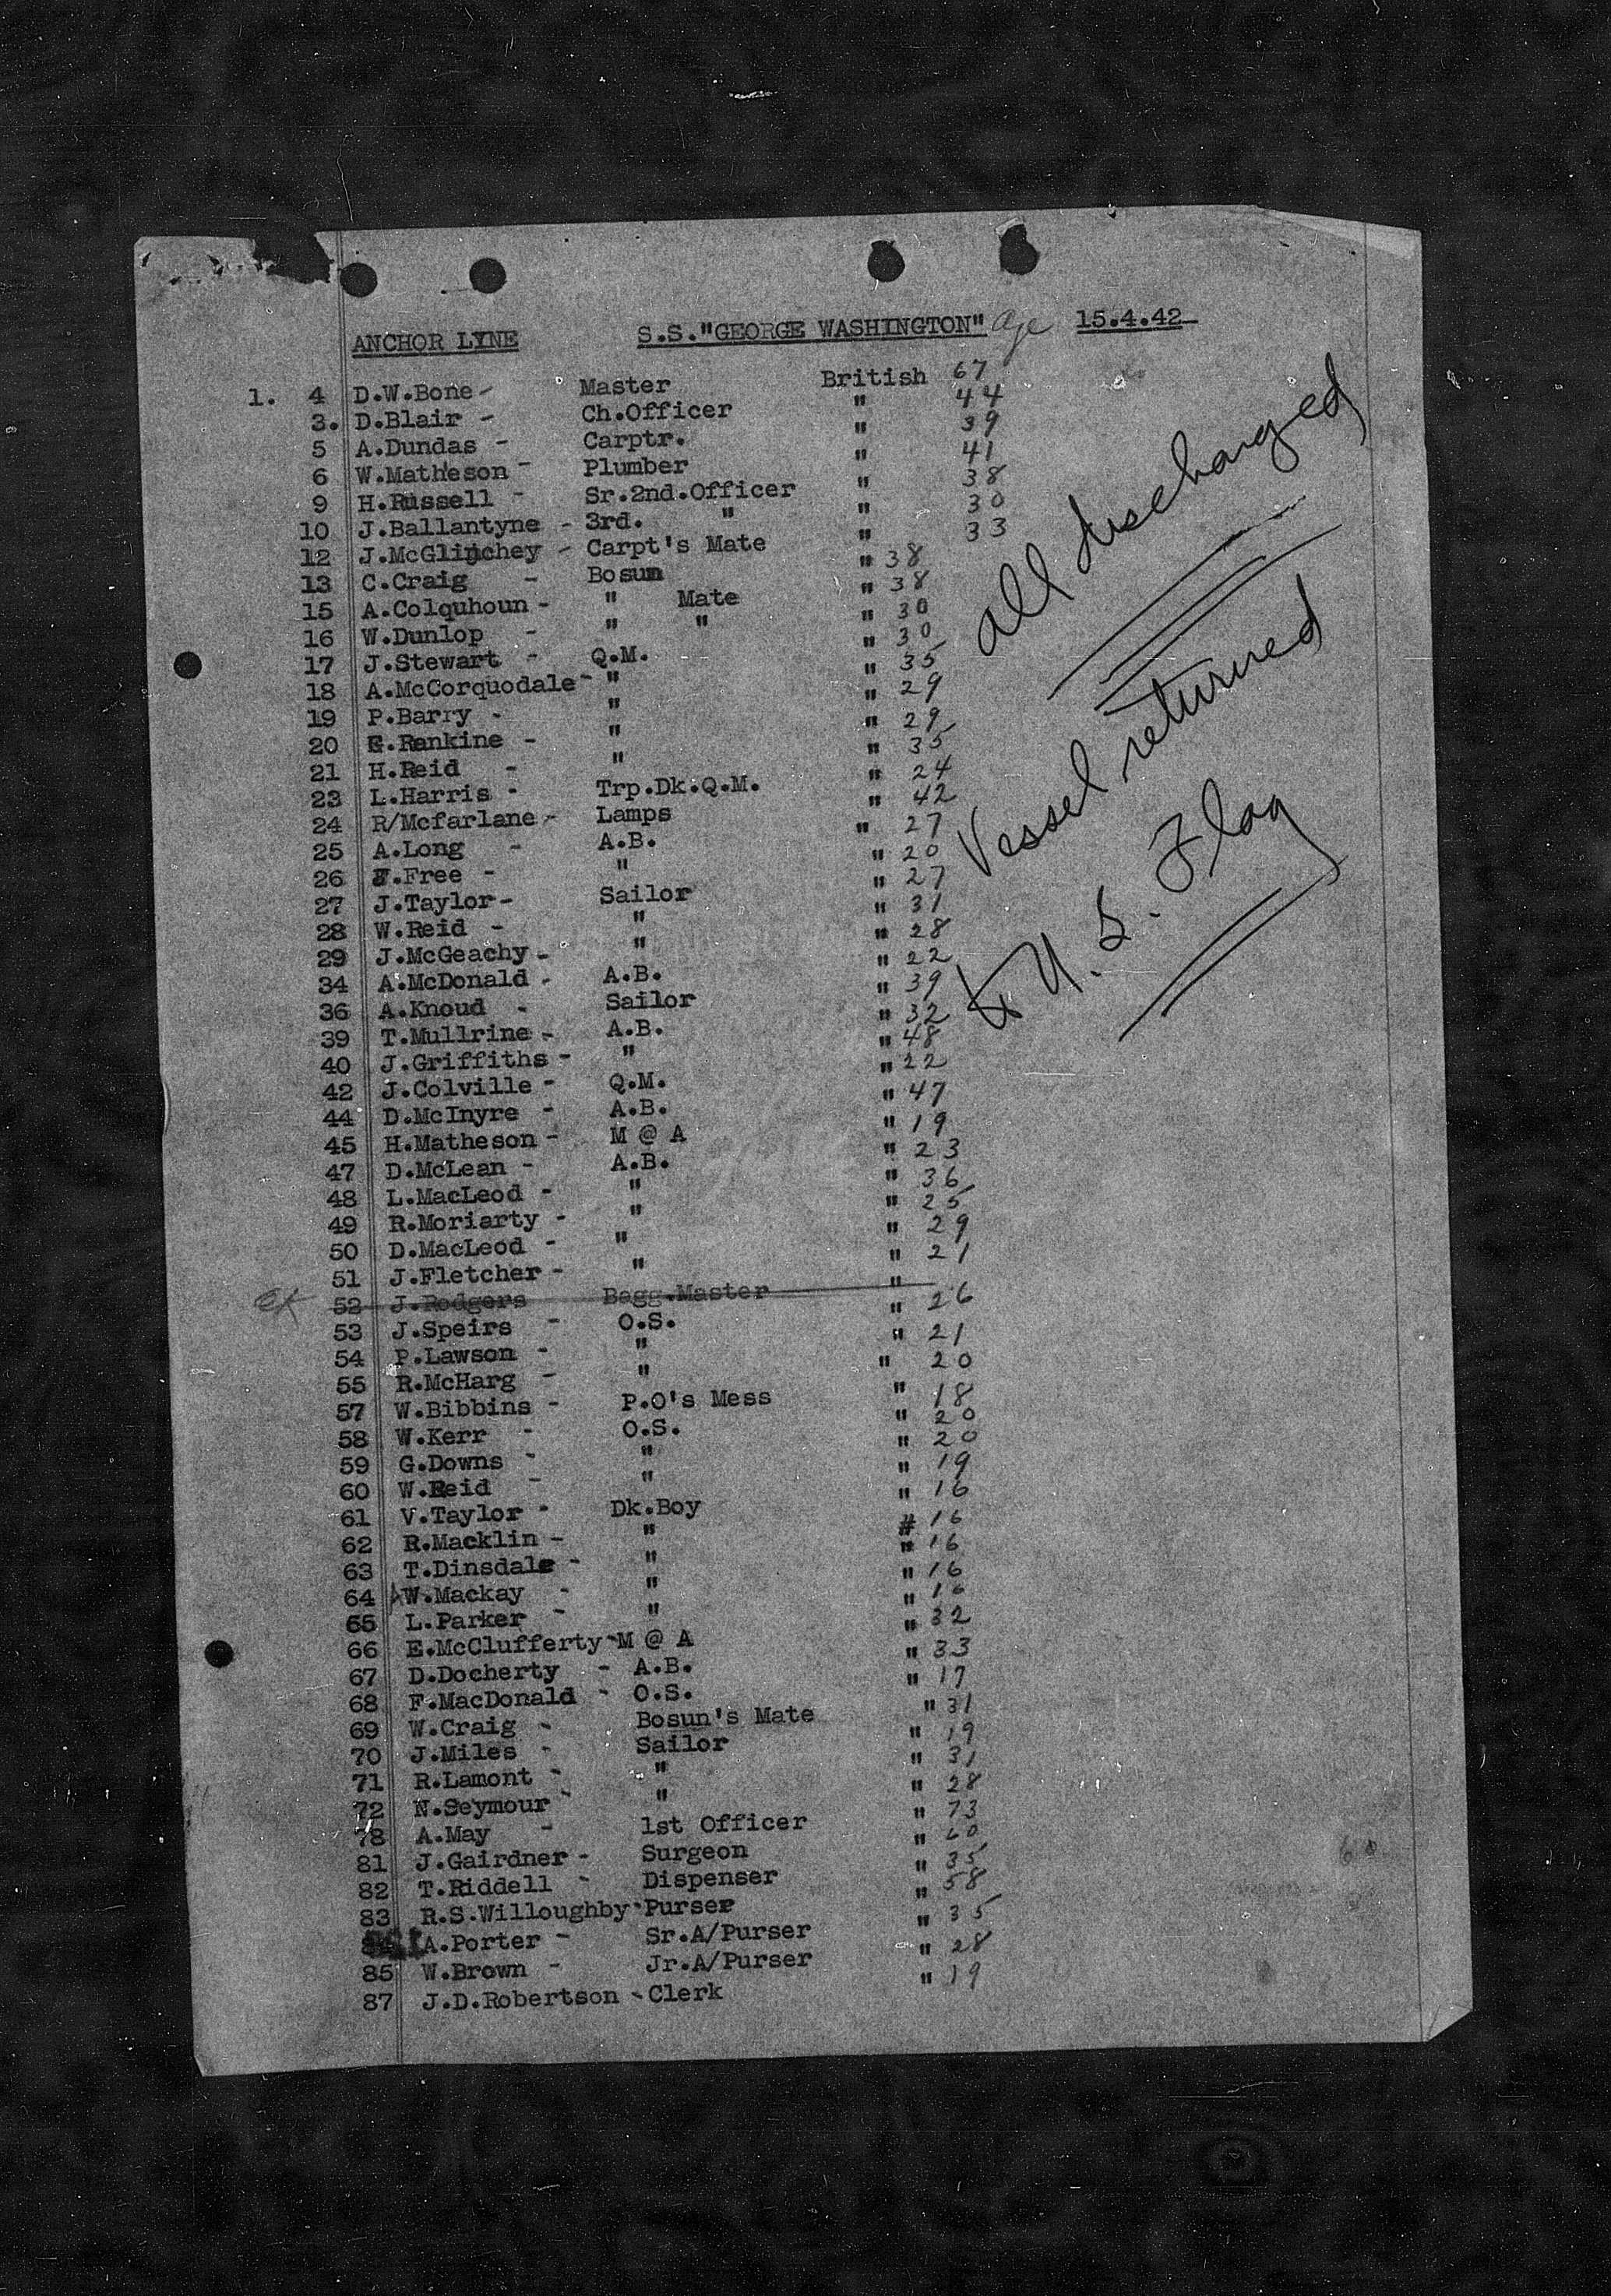 ANCHOR LYNE S.S."GEORGE WASHINGTON" Age 15.4.42
1. 4 D.W.Bone - Master British 67
3. D.Blair - Ch.Officer " 44
5 A.Dundas - Carptr. " 39
6 W.Matheson - Plumber " 41
9 H.Russell - Sr.2nd.Officer " 38
10 J.Ballantyne - 3rd. " " 30
12 J.McGlinchey - Carpt's Mate " 33
13 C.Craig - Bosun " 38
15 A.Colquhoun - " Mate " 38
16 W.Dunlop - " " " 30
17 J.Stewart - Q.M. " 30
18 A.McCorquodale - " " 35
19 P.Barry - " " 29
20 G.Rankine - " " 29
21 H.Reid - " " 35
23 L.Harris - Trp.Dk.Q.M. " 24
24 R/Mcfarlane - Lamps " 42
25 A.Long - A.B. " 27
26 F.Free - " " 20
27 J.Taylor - Sailor " 27
28 W.Reid - " " 31
29 J.McGeachy - " " 28
34 A.McDonald - A.B. " 22
36 A.Knoud - Sailor " 39
39 T.Mullrine - A.B. " 32
40 J.Griffiths - " " 48
42 J.Colville - Q.M. " 22
44 D.McInyre - A.B. " 47
45 H.Matheson - M @ A " 19
47 D.McLean - A.B. " 23
48 L.MacLeod - " " 36
49 R.Moriarty - " " 25
50 D.MacLeod - " " 29
51 J.Fletcher - " " 21
52 J.Rodgers Bagg.Master "
53 J.Speirs - O.S. " 26
54 P.Lawson - " " 21
55 R.McHarg - " " 20
57 W.Bibbins - P.O's Mess " 18
58 W.Kerr - O.S. " 20
59 G.Downs - " " 20
60 W.Reid - " " 19
61 V.Taylor - Dk.Boy " 16
62 R.Macklin - " # 16
63 T.Dinsdale - " " 16
64 W.Mackay - " " 16
65 L.Parker - " " 16
66 E.McClufferty - M @ A " 32
67 D.Docherty - A.B. " 33
68 F.MacDonald - O.S. " 17
69 W.Craig - Bosun's Mate " 31
70 J.Miles - Sailor " 19
71 R.Lamont - " " 31
72 N.Seymour - " " 28
78 A.May - 1st Officer " 73
81 J.Gairdner - Surgeon " 60
82 T.Riddell - Dispenser " 35
83 R.S.Willoughby - Purser " 58
A.Porter - Sr.A/Purser " 35
85 W.Brown - Jr.A/Purser " 28
87 J.D.Robertson - Clerk " 19
all discharged
Vessel returned
to U.S. Flag